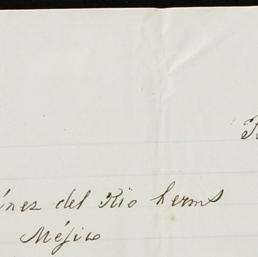 ínez del Rio herms
Méjico